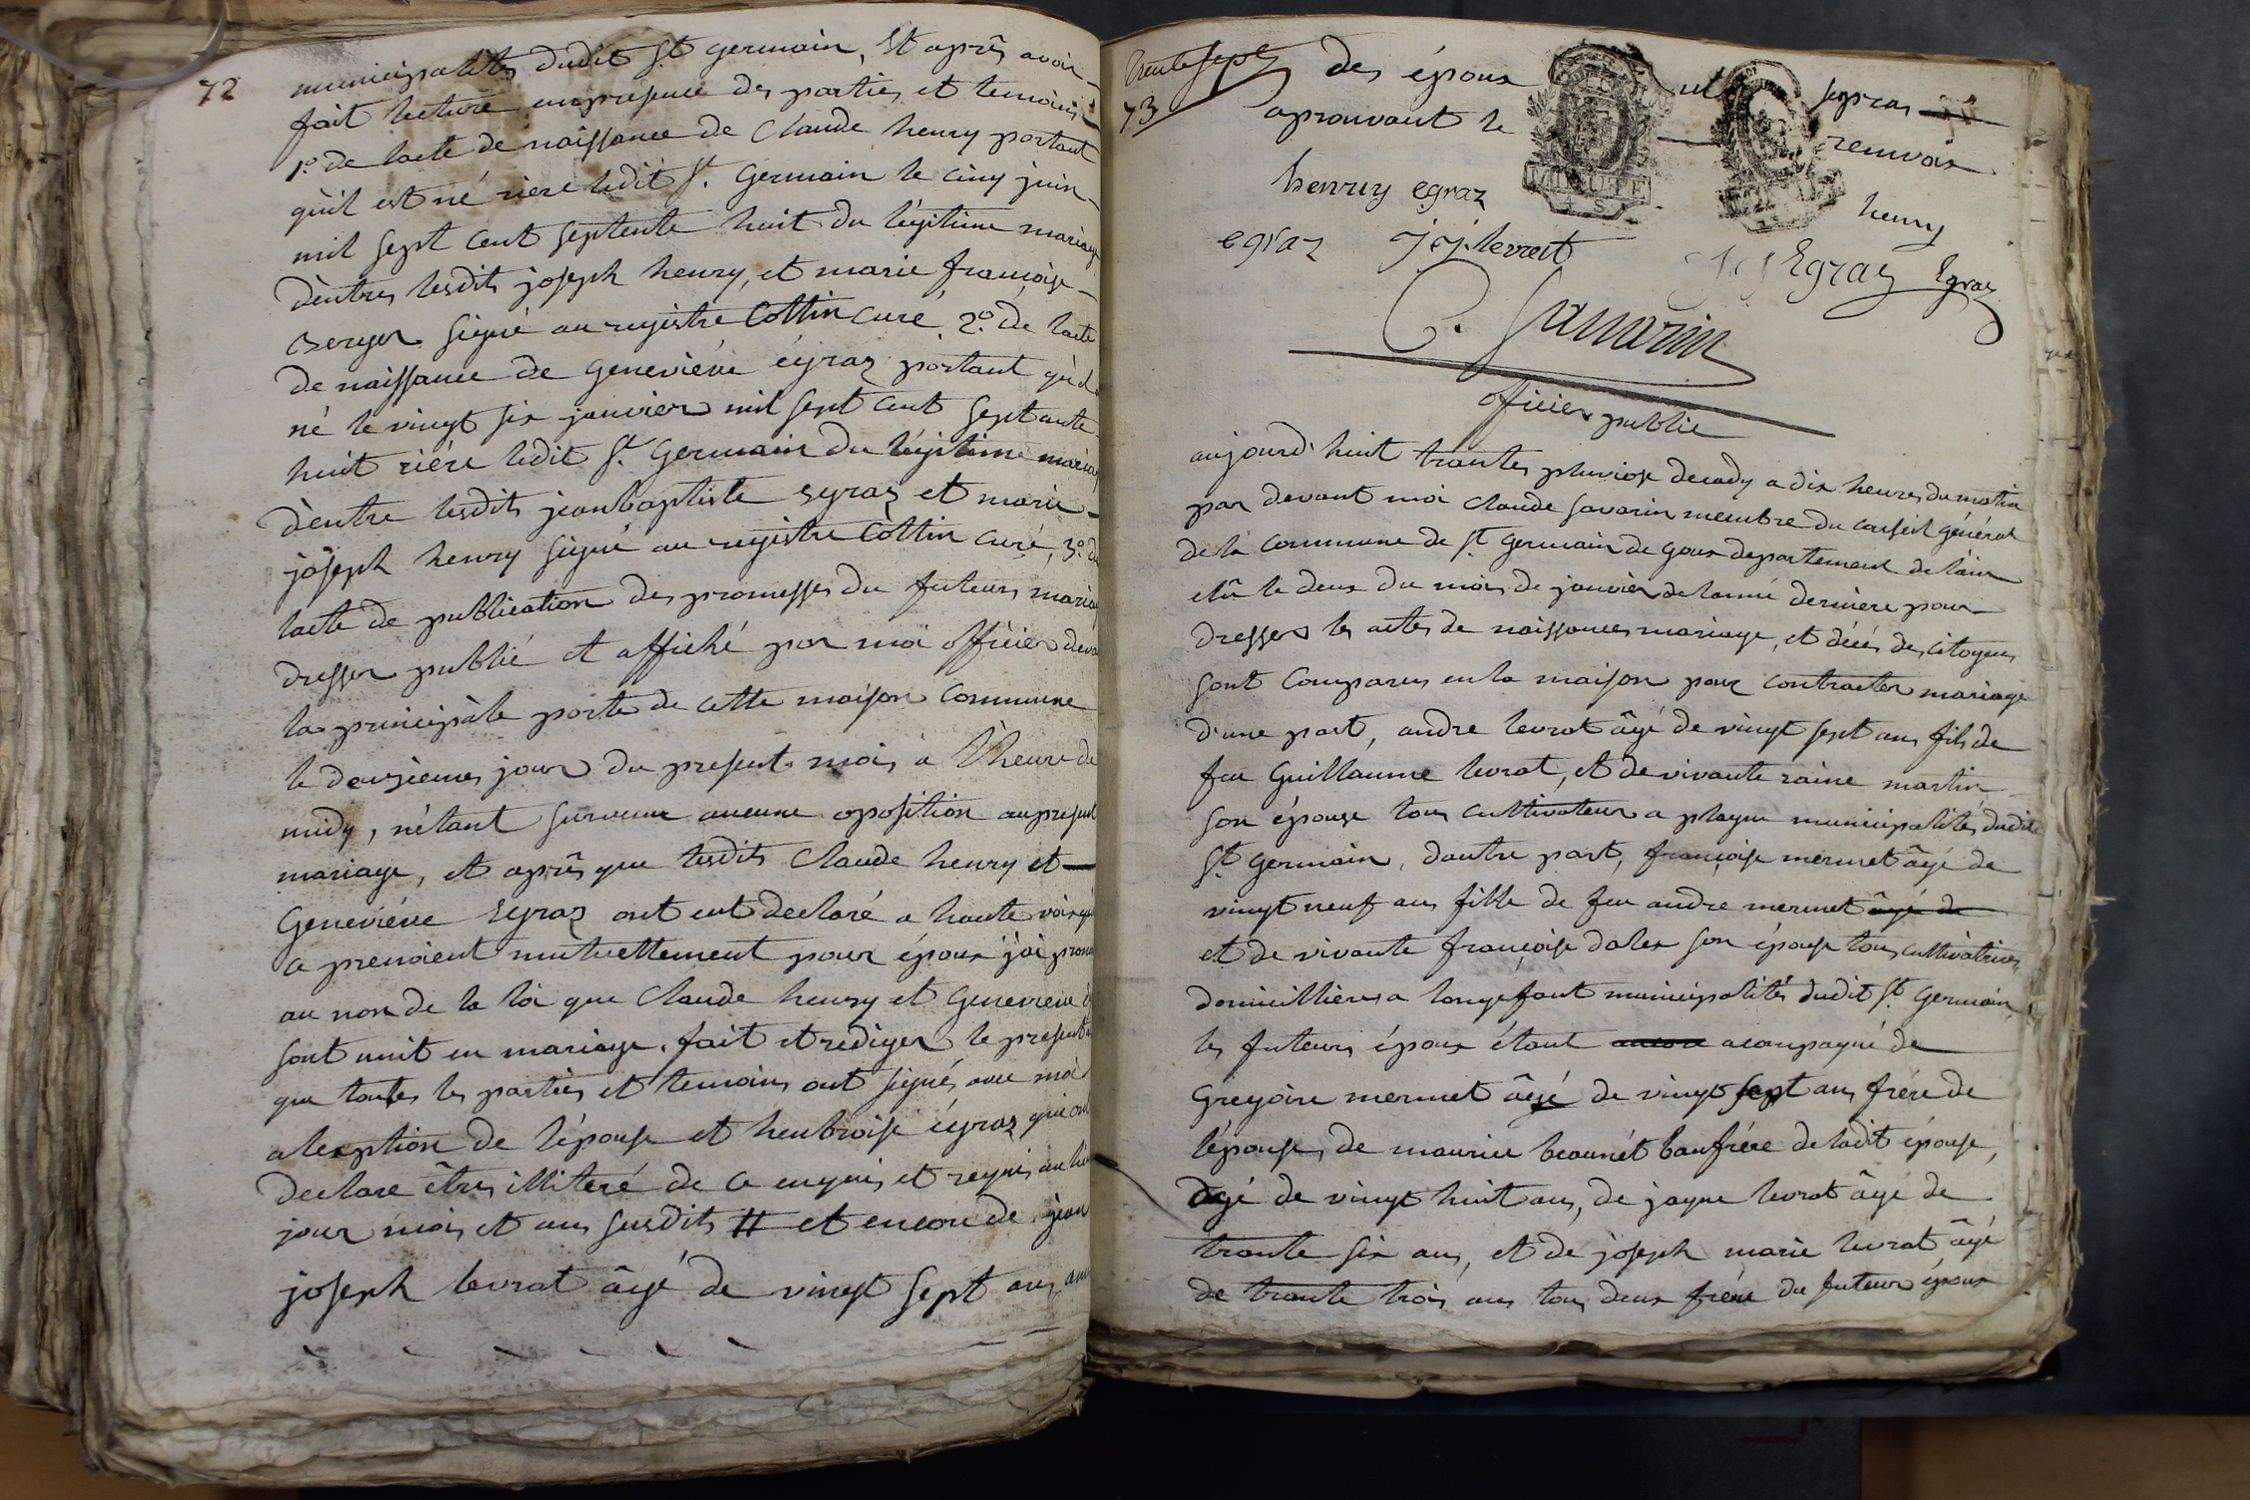 72
municipalités dudit St germain, Et après avoir
fait lecture en presence des parties et temoins
1o. de lacte de naissance de Claude henry portant
qu'il est né riere ledit St. Germain le cinq juin
mil sept cent septente huit du légitime mariage
d'entres lesdits joseph henry, et marie françoise
Berger signé au registre Cottin curé, 2o. de lacte
de naissance de Geneviéve égraz portant
né le vingt six janvier mil sept cent septante
huit riére ledit St. Germain du légitime
d'entre lesdits jean baptiste egraz et marie
joseph henry signé au registre Cottin curé, 3o. de
lacte de publication des promesses du futeurs
dresser publié et affiché par moi officier
la principale porte de cette maison commune
le deuxiemes jour du present mois a l'heure de
midy, n'étant survenu aucune oposition au present
mariage, et après que lesdits Claude henry et
Geneviéve Egraz ont eut declaré a haute voix
ce prenoient mutuellement pour époux j'ai
au non de la loi que Claude henry et Genevieve
sont unit en mariage. fait et rediger le present
que toutes les parties et temoins ont signés avec moi
a lexeption de l'épouse et égraz qui ont
declare être illiteré de ce enquis et requis au lieu
jour mois et ans susdits # et encore de jean
joseph levrat âgé de vingt sept ans
trente sept
73
des époux segras
aprouvant le renvoix
henry egraz henry
egraz j j levrat
Egraz Egraz
C. Savarin
officier public
aujourd'huit trantes pluviose decady a dix heures du matin
par devant moi Claude Savarin membre du conseil général
de la commune de St germain de goux departement de lain
elû le deux du mois de janvier de lanné derniere pour
dresser les actes de naissances mariage, et décés des citoyens
sont comparus en la maison pour contracter mariage
d'une part, andre levrat âgé de vingt sept ans fils de
feu Guillaume levrat, et de vivante raine martin
son épouse tous cultivateur a plagne municipalités dudit
St. germain, dautre part, françoise mermet âgé de
vingt neuf ans fille de feu andre mermet âgé de
et de vivante françoise dalex son épouse tous cultivatrices
domicillières a longefant municipalités dudit St. Germain
les futeurs époux étant acompagné de
Gregoire mermet âgé de vingt sept ans frére de
l'épouse, de maurice beaunét baufrére de ladit épouse,
âgé de vingt huit ans, de jaque levrat âgé de
trante six ans, et de joseph marie levrat âgé
de trante trois ans tous deux frére du futeur époux